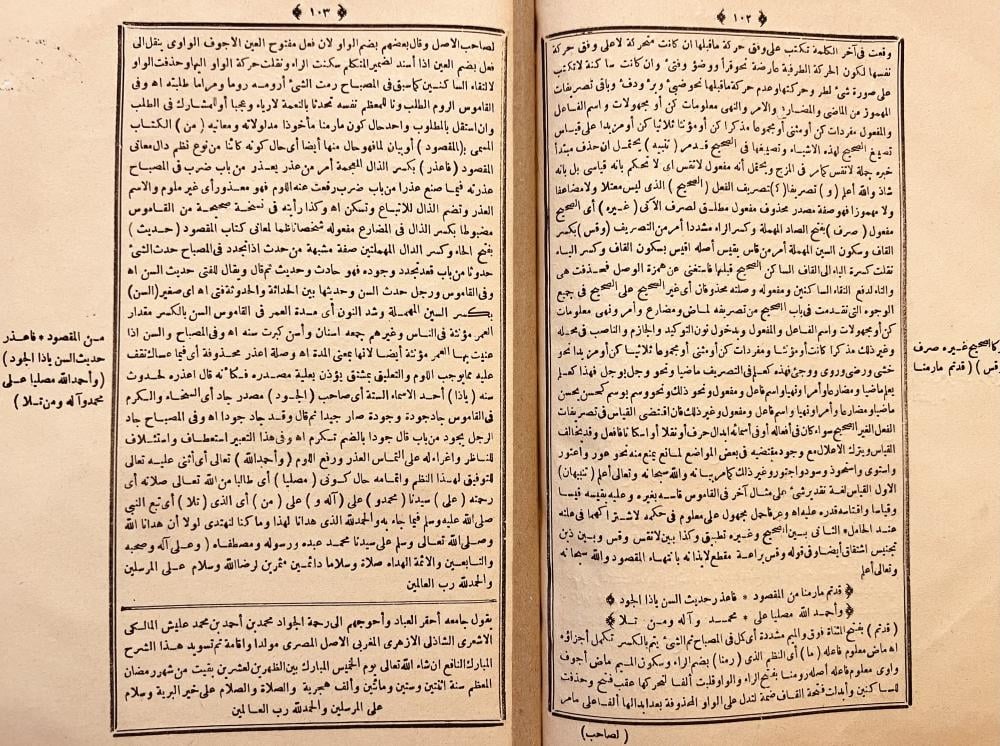 ﴿ ١٠٢ ﴾
وقعت فى آخر الكلمة تكتب على وفق حركة ماقبلها ان كانت متحركة لاعلى وفق حركة
نفسها لكون الحركة الطرفية عارضة نحو قرأ ووضؤ وفتئ وان كانت ساكنة لاتكتب
على صورة شئ لطر وحركتها وعدم حركة ماقبلها نحو ضبئ وبرء ودفء وباقى تصريفات
المهموز من الماضى والمضارع والامر والنهى معلومات كن أو مجهولات واسم الفاعل
والمفعول مفردات كن أو مثنى أو مجموعا مذكرا كن أو مؤنثا ثلاثيا كن أو مزيدا على قياس
تصريف الصحيح لهذه الاشياء وتصريفها فى الصحيح قد مر (تنبيه) يحتمل ان حذف مبتدأ
خبره جملة لاتقس كامر فى المزج ويحتمل أنه مفعول لاتقس اى لا تحكم بانه قياسى بل بانه
شاذ والله أعلم (و) تصريفا (ك) تصريف الفعل (الصحيح) الذى ليس معتلا ولا مضاعفا
ولا مهموزا فهو صفة مصدر محذوف مفعول مطلق لصرف الآتى (غيره) أى الصحيح
مفعول (صرف) بفتح الصاد المهملة وكسر الراء مشددا أمر من التصريف (وقس) بكسر
القاف وسكون السين المهملة أمر من قاس يقيس أصله اقيس بسكون القاف وكسر الياء
نقلت كسرة الياء الى القاف الساكن الصحيح قبلها فاستغنى عن همزة الوصل فحذفت هى
والياء لدفع التقاء الساكنين ومفعوله وصلته محذوفان أى غير الصحيح على الصحيح فى جميع
الوجوه التى تقدمت فى باب الصحيح من تصريفه لماض ومضارع وأمر ونهى معلومات
كن أو مجهولات واسم الفاعل والمفعول وبدخول نون التوكيد والجازم والناصب فى محله
وغير ذلك مذكرا كانت أو مؤنثا ومفردات كن أو مثنى أو مجموعا ثلاثيا كن أو مزيدا نحو
خشى ورضى وروى ووجئ فهذه كعلم فى التصريف ماضيا ونحو وجل يوجل فهذا كعلم
يعلم ماضيا ومضارعا وأمرا ونهيا واسم فاعل ومفعول ونحو ذلك ونحو وسم يوسم كحسن يحسن
ماضيا ومضارعا وأمرا ونهيا واسم فاعل ومفعول وغير ذلك فان اقتضى القياس فى تصريفات
الفعل الغير الصحيح سواء كان فى أفعاله أو فى أسمائه ابدال حرف أو نقلا أو اسكانا فافعل وقد يخالف
القياس ويترك الاعلال مع وجود مقتضيه فى بعض المواضع لمانع يمنع منه نحو عور واعتور
واستوى واستحوذ وسود واجتور وغير ذلك كامر بيانه والله سبحانه وتعالى أعلم (تنبيهان)
الاول القياس لغة تقدير شئ على مثال آخر فى القاموس قاسه بغيره وعليه يقيسه قيسا
وقياسا واقتاسه قدره عليه اه وعرفا حمل مجهول على معلوم فى حكمه لاشتراكهما فى علته
عند الحامل اه الثانى بين الصحيح وغيره تطبيق وكذا بين لاتقس وقس وبين ذين
تجنيس اشتقاق أيضا وفى قوله وقس براعة مقطع لايذانه بانتهاء المقصود والله سبحانه
وتعالى أعلم
﴿ قدتم مارمنا من المقصود * فاعذر حديث السن ياذا الجود ﴾
﴿ وأحمد الله مصليا على * محمد وآله ومن تلا ﴾
(قدتم) بفتح المثناة فوق والميم مشددة أى كل فى المصباح تم الشئ يتم بالكسر تكمل أجزاؤه
اه ماض معلوم فاعله (ما) أى النظم الذى (رمنا) بضم الراء وسكون الميم ماض أجوف
واوى معلوم فاعله أصله رومنا بفتح الراء والواو قلبت ألفا لتحركها عقب فتح وحذفت
للساكنين وأبدلت فتحة القاف ضمة لتدل على الواو المحذوفة بعد ابدالها ألفا على مامر
(لصاحب)
كالصحيح غيره صرف
وقس) (قدتم مارمنا
﴿ ١٠٣ ﴾
لصاحب الاصل وقال بعضهم بضم الواو لان فعل مفتوح العين الاجوف الواوى ينقل الى
فعل بضم العين اذا أسند لضمير المتكلم سكنت الراء ونقلت حركة الواو اليها وحذفت الواو
لالتقاء الساكنين كما سبق فى المصباح رمت الشئ أرومه روما ومراما طلبته اه وفى
القاموس الروم الطلب ونا للمعظم نفسه تحدثا بالنعمة لارياء وعجبا أو المشارك فى الطلب
وان استقل بالمطلوب واحد حال كون مارمنا مأخوذا مدلولاته ومعانيه (من) الكتاب
المسمى ب(المقصود) أو بيان لما فهو حال منها أيضا أى حال كونه كائنا من نوع نظم دال معانى
المقصود (فاعذر) بكسر الذال المعجمة أمر من عذر يعذر من باب ضرب فى المصباح
عذرته فيما صنع عذرا من باب ضرب رفعت عنه اللوم فهو معذور أى غير ملوم والاسم
العذر وتضم الذال للاتباع وتسكن اه وكذا رأيته فى نسخة صحيحة من القاموس
مضبوطا بكسر الذال فى المضارع مفعوله شخصا ناظما لمعانى كتاب المقصود (حديث)
بفتح الحاء وكسر الدال المهملتين صفة مشبهة من حدث اذا تجدد فى المصباح حدث الشئ
حدوثا من باب قعد تجدد وجوده فهو حادث وحديث ثم قال ويقال للفتى حديث السن اه
وفى القاموس ورجل حدث السن وحديثها بين الحداثة والحدوثة فتى اه أى صغير (السن)
بكسر السين المهملة وشد النون أى مدة العمر فى القاموس السن بالكسر مقدار
العمر مؤنثة فى الناس وغيرهم جمعه اسنان وأسن كبرت سنه اه وفى المصباح والسن اذا
عنيت بها العمر مؤنثة أيضا لانها بمعنى المدة اه وصلة اعذر محذوفة أى فيما عسالك تقف
عليه مما يوجب اللوم والتعليق بمشتق يؤذن بعلية مصدره فكأنه قال اعذره لحدوث
سنه (ياذا) أحد الاسماء الستة أى صاحب (الجود) مصدر جاد أى السخاء والكرم
فى القاموس جاد جودة وجودة صار جيدا ثم قال وقد جاد جودا اه وفى المصباح جاد
الرجل يجود من باب قال جودا بالضم تكرم اه وفى هذا التعبير استعطاف واستئلاف
للناظر واغراء له على التماس العذر ورفع اللوم (وأحمد الله) تعالى أى أثنى عليه تعالى
للتوفيق لهذا النظم واتمامه حال كونى (مصليا) أى طالبا من الله تعالى صلاته أى
رحمته (على) سيدنا (محمد و) على (آله و) على (من) أى الذى (تلا) أى تبع النبى
صلى الله عليه وسلم فيما جاء به والحمد لله الذى هدانا لهذا وما كنا لنهتدى لولا أن هدانا الله
وصلى الله تعالى وسلم على سيدنا محمد عبده ورسوله ومصطفاه (وعلى آله وصحبه
والتابعين والائمة الهداه صلاة وسلاما دائمين مثمرين لرضا الله وسلام على المرسلين
والحمد لله رب العالمين
يقول جامعه أحقر العباد وأحوجهم الى رحمة الجواد محمد بن أحمد بن محمد عليش المالكى
الاشعرى الشاذلى الازهرى المغربى الاصل المصرى مولدا واقامة تم تسويد هذا الشرح
المبارك النافع ان شاء الله تعالى يوم الخميس المبارك بين الظهرين لعشر بن بقيت من شهر رمضان
المعظم سنة اثنتين وستين ومائتين وألف هجرية والصلاة والسلام على خير البرية وسلام
على المرسلين والحمد لله رب العالمين
مـن المقصود * فاعذر
حديث السن ياذا الجود)
(وأحمد الله مصليا على
محمد وآله ومن تلا)